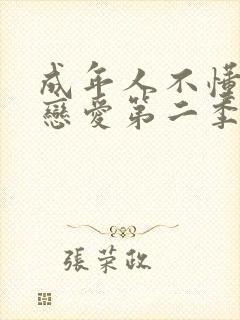 成年人不懂
戀愛第二季
張荣政